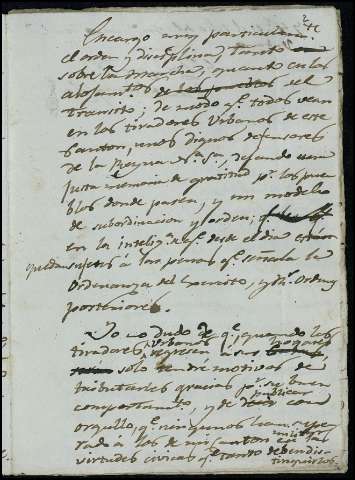 Encargo muy particularm.
el orden y disciplina, tanto
sobre la marcha, quanto en los
alojam.tos de los pueblos del
transito; de modo q.e todos vean
en los tiradores Urbanos de este
Canton, unos dignos defensores
de la Reyna N.a S.a, dejando una
justa memoria de gratitud p.r los pue
blos donde pasen, y un modelo
de subordinacion y orden;
en la intelig.a q.e desde el dia
quedan sujetos á las penas q.e señala la
Ordenanza del Exercito, y R.s Orden.s
posteriores.
Yo no dudo de q.e, quando los
tiradores Urbanos regresen á sus hogares
solo tendre motivos de
tributarles gracias p.r su buen
comportam.to, y de publicar con
orgullo, q.e ningunos han
á los de mi canton en las
virtudes civicas q.e tanto